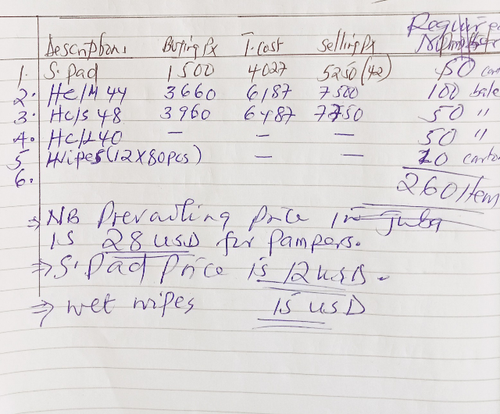 Required
Description Buying Px T.cost Selling Px Number
1. S.pad 1500 4027 5250 (42) 50 car
2. Hc/M 44 3660 6187 7500 100 bale
3. Hc/s 48 3960 6487 7750 50 "
4. Hc/L40 — — 50 "
5 Wipes (12X80pcs) — — 10 carton
6. 260 Item
⇒ NB Prevailing price in Juba
is 28 USD for pampers.
⇒ S.Pad Price is 12 USD.
⇒ wet wipes 15 USD